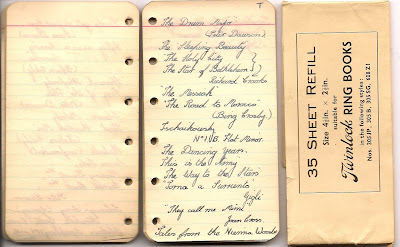 T
The Drum Major
(Peter Dawson)
The Sleeping Beauty
The Holy City }
The Star of Bethlehem }
Richard Crooks
"The Messiah"
"The Road to Morocco"
(Bing Crosby)
Tschaikowsky
Nº 1 B. Flat Minor
The Dancing Years.
This is the Army
The Way to the Stars
"Torna a Surriento"
Gigli
"They call me Mimi"
Joan Cross.
Tales from the Vienna Woods
35 SHEET REFILL
Size 4¾in. × 2¾in.
suitable for
Twinlock RING BOOKS
in the following styles: